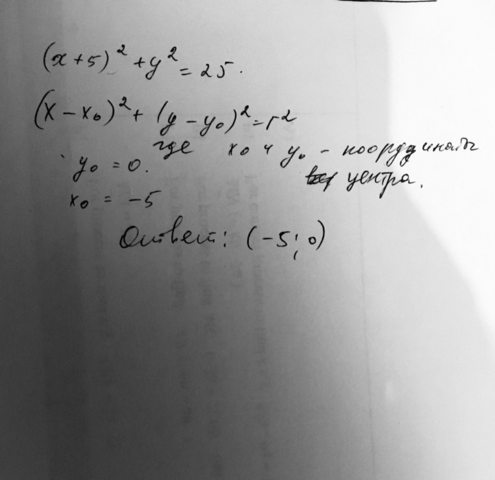 (x+5)² + y² = 25.
(x-x₀)² + (y-y₀)² = r²
где x₀ и y₀ - координаты
y₀ = 0. центра.
x₀ = -5
Ответ: (-5; 0)